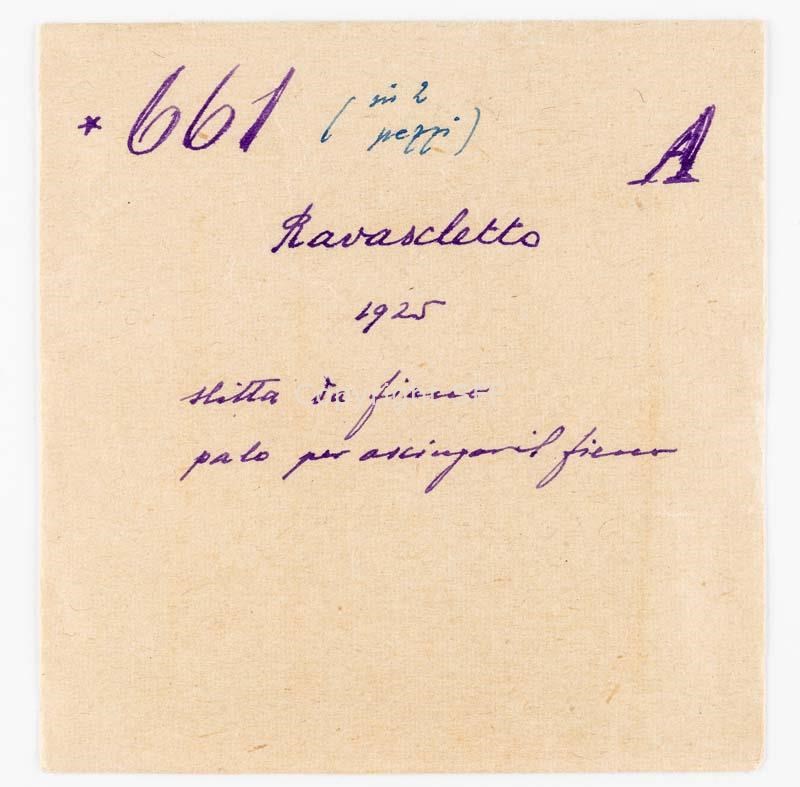 * 661 (in 2
pezzi)
A
Ravascletto
1925
slitta da fieno
palo per asciugar il fieno